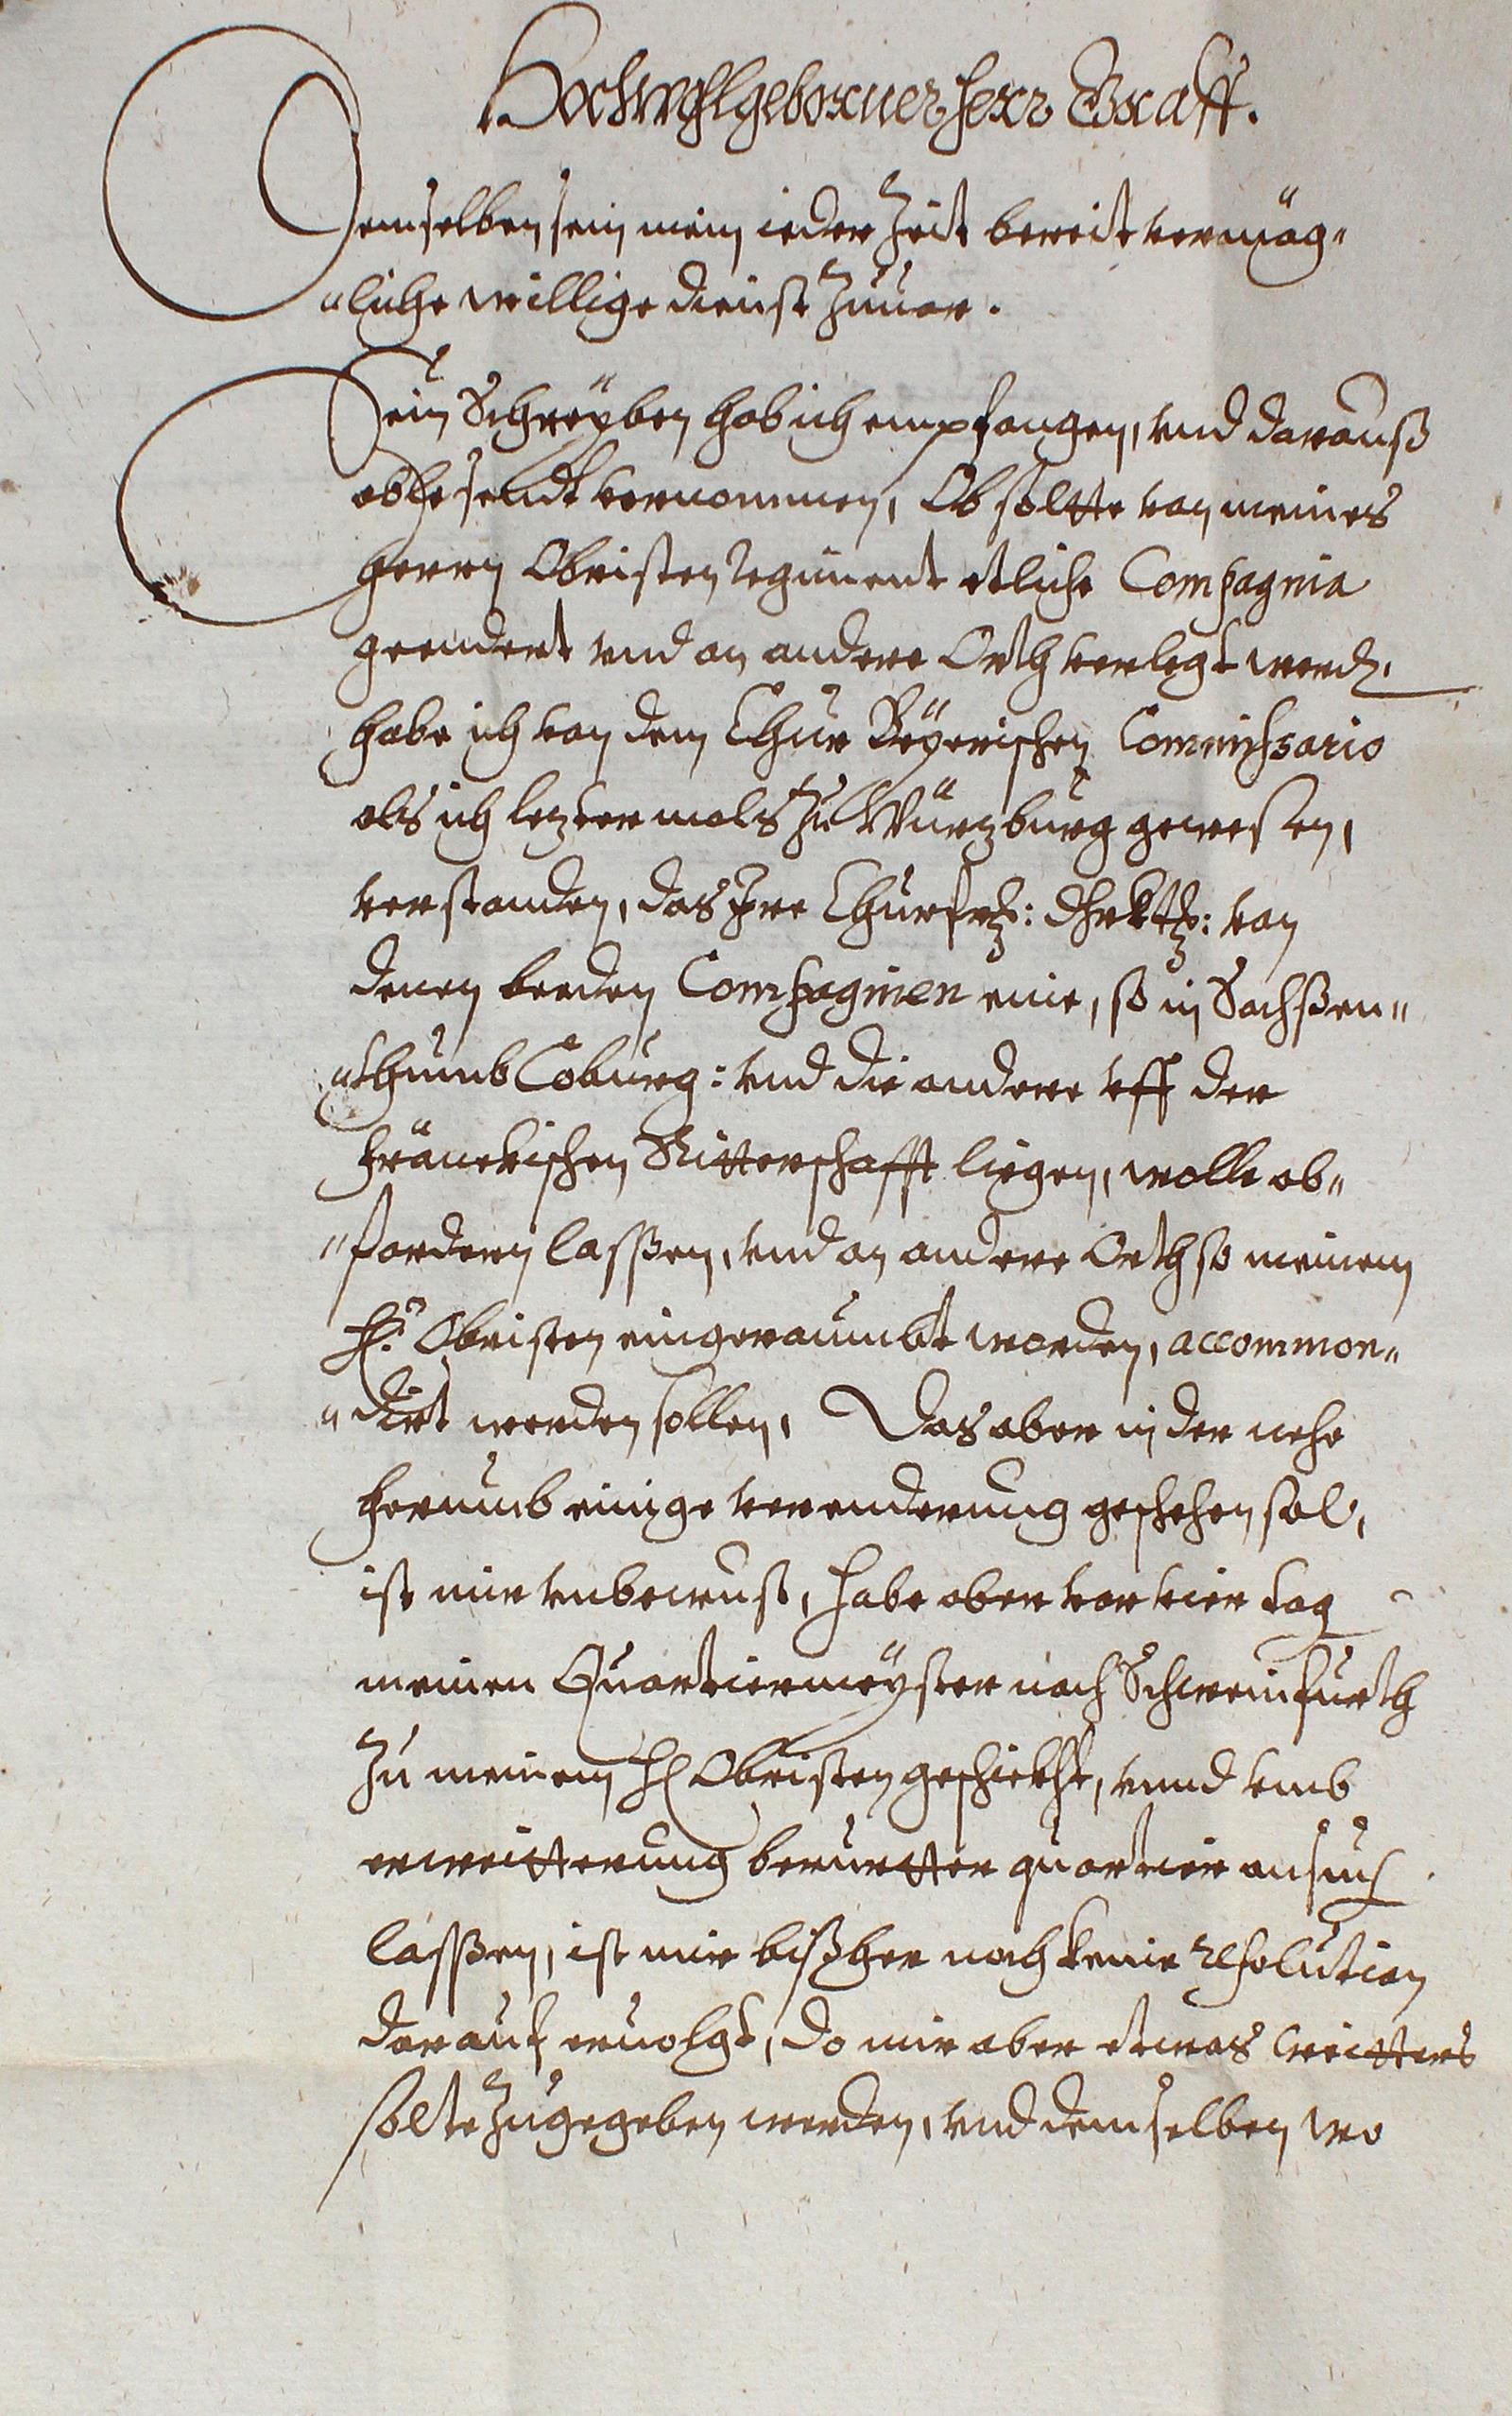 Hochwohlgeborner Herr Graff.
Demselben sein mein ieder Zeit bereit vermög„
„liche willige dienst Zuuor.
Dein Schreÿben hab ich empfangen, vnd darauß
ablesendt vernommen, Ob soltte von meines
Herrn Obristen Regiment etliche Compagnia
geendert vnd an andere Orth verlegt werd.
habe ich von dem Chur Beÿerischen Commissario
als ich letzter mals Zu Würzburg gewesen,
verstanden, das Ihre Churfrl: Dhrltl: von
denen beeden Compagnien eine, so in Sachßen„
„thumb Coburg: vnd die andere vff der
Fränckischen Ritterschafft liegen, wolle ab„
„fordern laßßen, vnd an andere Orth so meinem
H: Obristen eingeraumbt worden, accommon„
„dirt werden sollen, Das aber in der nehe
herumb einige verenderung geschehen sol,
ist mir vnbewust, habe aber vor vier tag
meinen Quartiermeÿster nach Schweinfurth
Zu meinem H Obristen geschickht, vnnd vmb
erweitterung berurtter quartier ansuch
laßßen, ist mir bißher noch keine resolution
darauf eruolgt, do mir aber etwas weitters
solte Zugegeben werden, vnd demselben wo